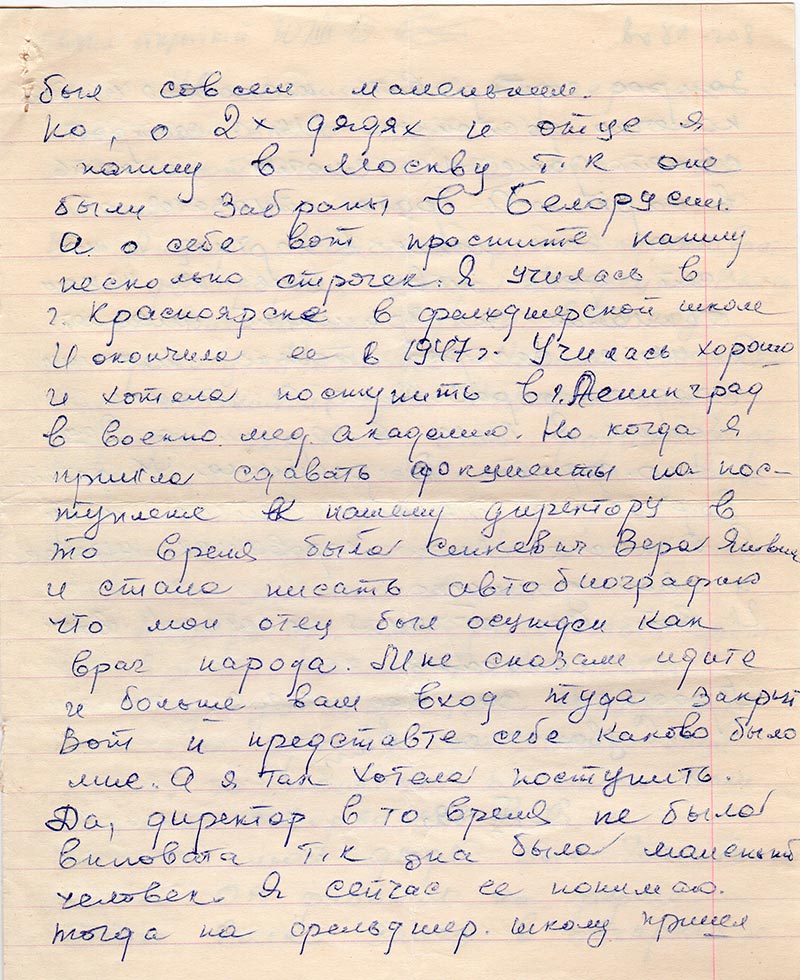 был совсем маленьким.
Но, о 2х дядях и отце я
напишу в Москву т.к они
были Забраны в Белорусии.
А о себе вот простите напишу
несколько строчек. Я училась в
г. Красноярске в фельдшерской школе
И окончила ее в 1947г. Училась хорошо
и хотела поступить в г. Ленинград
в военно. мед. академию. Но когда я
пришла сдавать документы на пос-
тупление к нашему директору в
то время была Сенкевич Вера
и стала писать автобиографию
что мой отец был осужден как
враг народа. Мне сказали идите
и больше вам вход туда закрыт
Вот и представте себе каково было
мне. А я так хотела поступить.
Да, директор в то время не была
виновата т.к она была маленький
человек. Я сейчас ее понимаю.
тогда на фельдшер. школу пришел